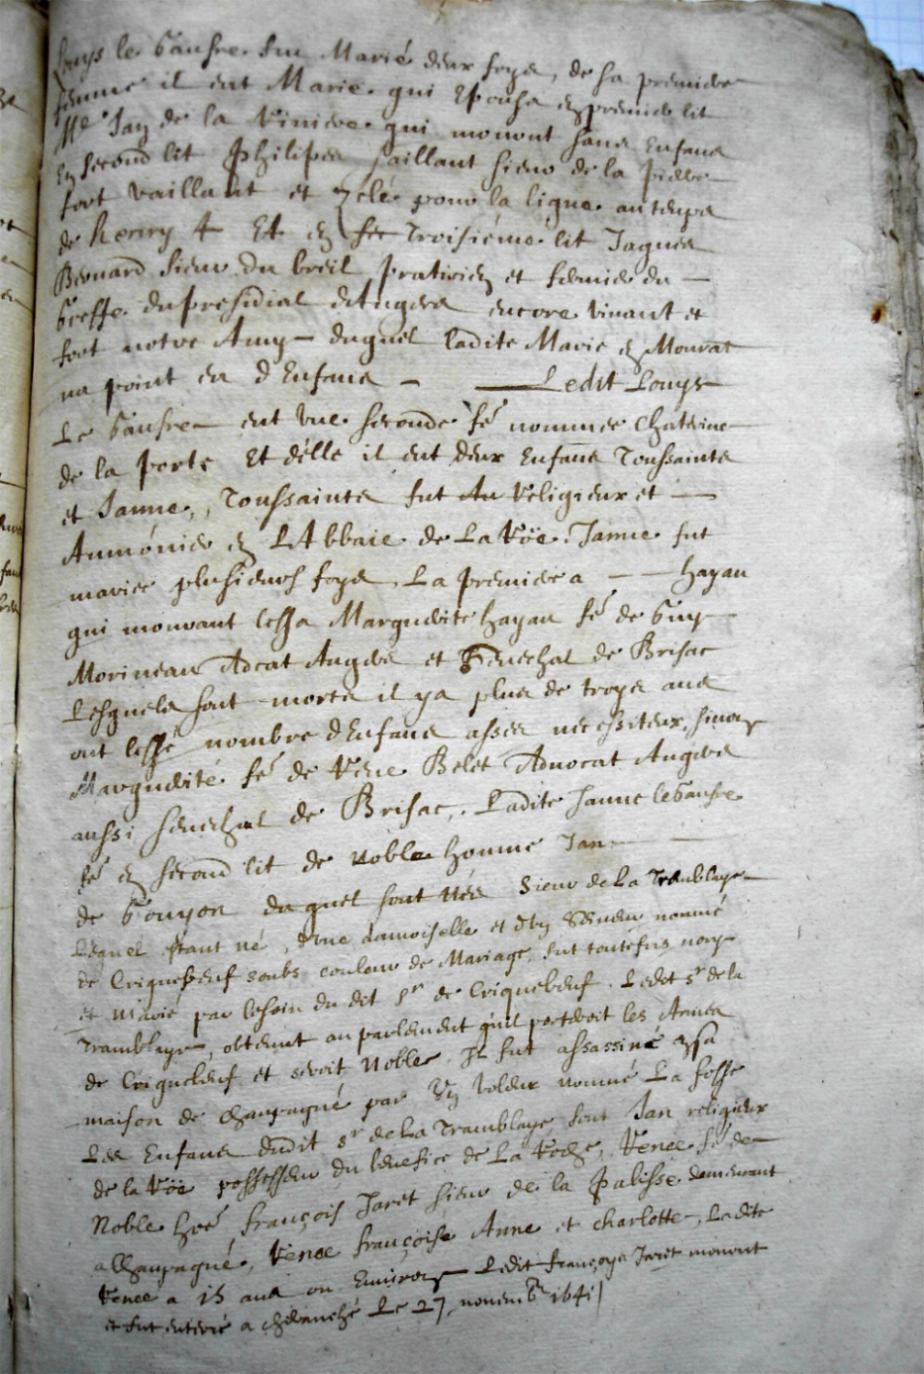 Louys le Gaufre fut Marié deux foys, de sa premiere
femme il eut Marie qui Espousa en premier lit
Me Jan de la Riviere qui mourut sans Enfans
En second lit Philipes Saillant sieur de la Pierre
fort vaillant et zelé pour la ligue au temps
de Henry 4 Et en son troisième lit Jaques
Bernard sieur du breil praticien et fermier du
Greffe du presidial d'Angers encore vivant et
fort notre Amy duquel ladite Marie en Mourat
na point eu d'Enfans Ledit Louys
Le Gaufre eut une seconde fe nommee Chaterine
de la porte Et d'elle il eut deux Enfans Toussaints
et Janne, Toussaints fut Au Religieux et
Aumônier en L'Abbaie de La Roë. Janne fut
mariee plusieurs foys, La premiere a Hayau
qui mourant lessa Marguerite Hayau fe de Guy
Morineau Adcat Angers et Senechal de Brisac
Lesquels sont morts il ya plus de troys ans
ont lessé nombre d'Enfans asses necessiteux, sinon
Marguerite fe de Rene Belet Advocat Angers
aussi senechal de Brisac, Ladite Janne le Gaufre
fe en second lit de Noble homme Jan
de Gouyon duquel sont nés Sieur de La Tramblaye
Lequel étant né d'une damoiselle et d'un Seigneur nommé
de Criquebeuf soubs couleur de Mariage, fut toutefois nory
et marié par le soin du dit Sr de Criquebeuf. Ledit Sr de la
Tramblaye, obtint au parlement qu'il porteroit les Armes
de Criquebeuf et seroit Noble Il fut assassiné en sa
maison de Champagné par Un voleur nommé La fosse
Les Enfans dudit Sr de La Tramblaye sont Jan religieux
de la Roë possesseur du benefice de La Roche, Renee fe de
Noble hoe François Jaret sieur de la Palisse demeurant
a Champagné, Renee Françoise Anne et Charlotte, La dite
Renee a 15 ans ou Environ Ledit françoys Jaret mourut
et fut enterré a Chevanché Le 27 novembr 1641